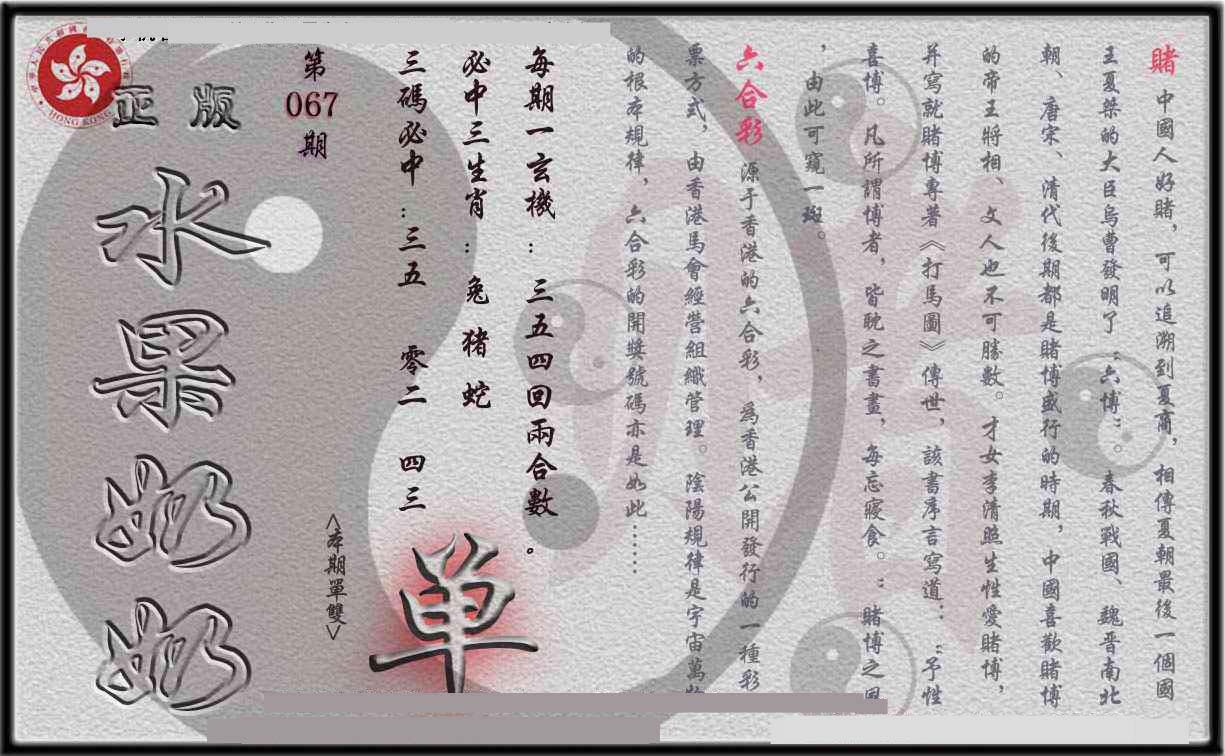 賭 中國人好賭，可以追溯到夏商，相傳夏朝最後一個國
王夏桀的大臣烏曹發明了“六博”。春秋戰國、魏晋南北
朝、唐宋、清代後期都是賭博盛行的時期，中國喜歡賭博
的帝王將相、文人也不可勝數。才女李清照生性愛賭博，
并寫就賭博專著《打馬圖》傳世，該書序言寫道：“予性
喜博。凡所謂博者，皆耽之書畫，每忘寢食。”賭博之風
，由此可窺一斑。
六合彩 源于香港的六合彩，爲香港公開發行的一種彩
票方式，由香港馬會經營組織管理。陰陽規律是宇宙萬物
的根本規律，六合彩的開獎號碼亦是如此……
每期一玄機：三五四回兩合數。
必中三生肖：兔 猪 蛇
三碼必中：三五 零二 四三
单
第067期
<本期單雙>
正版
水果奶奶
HONG KONG